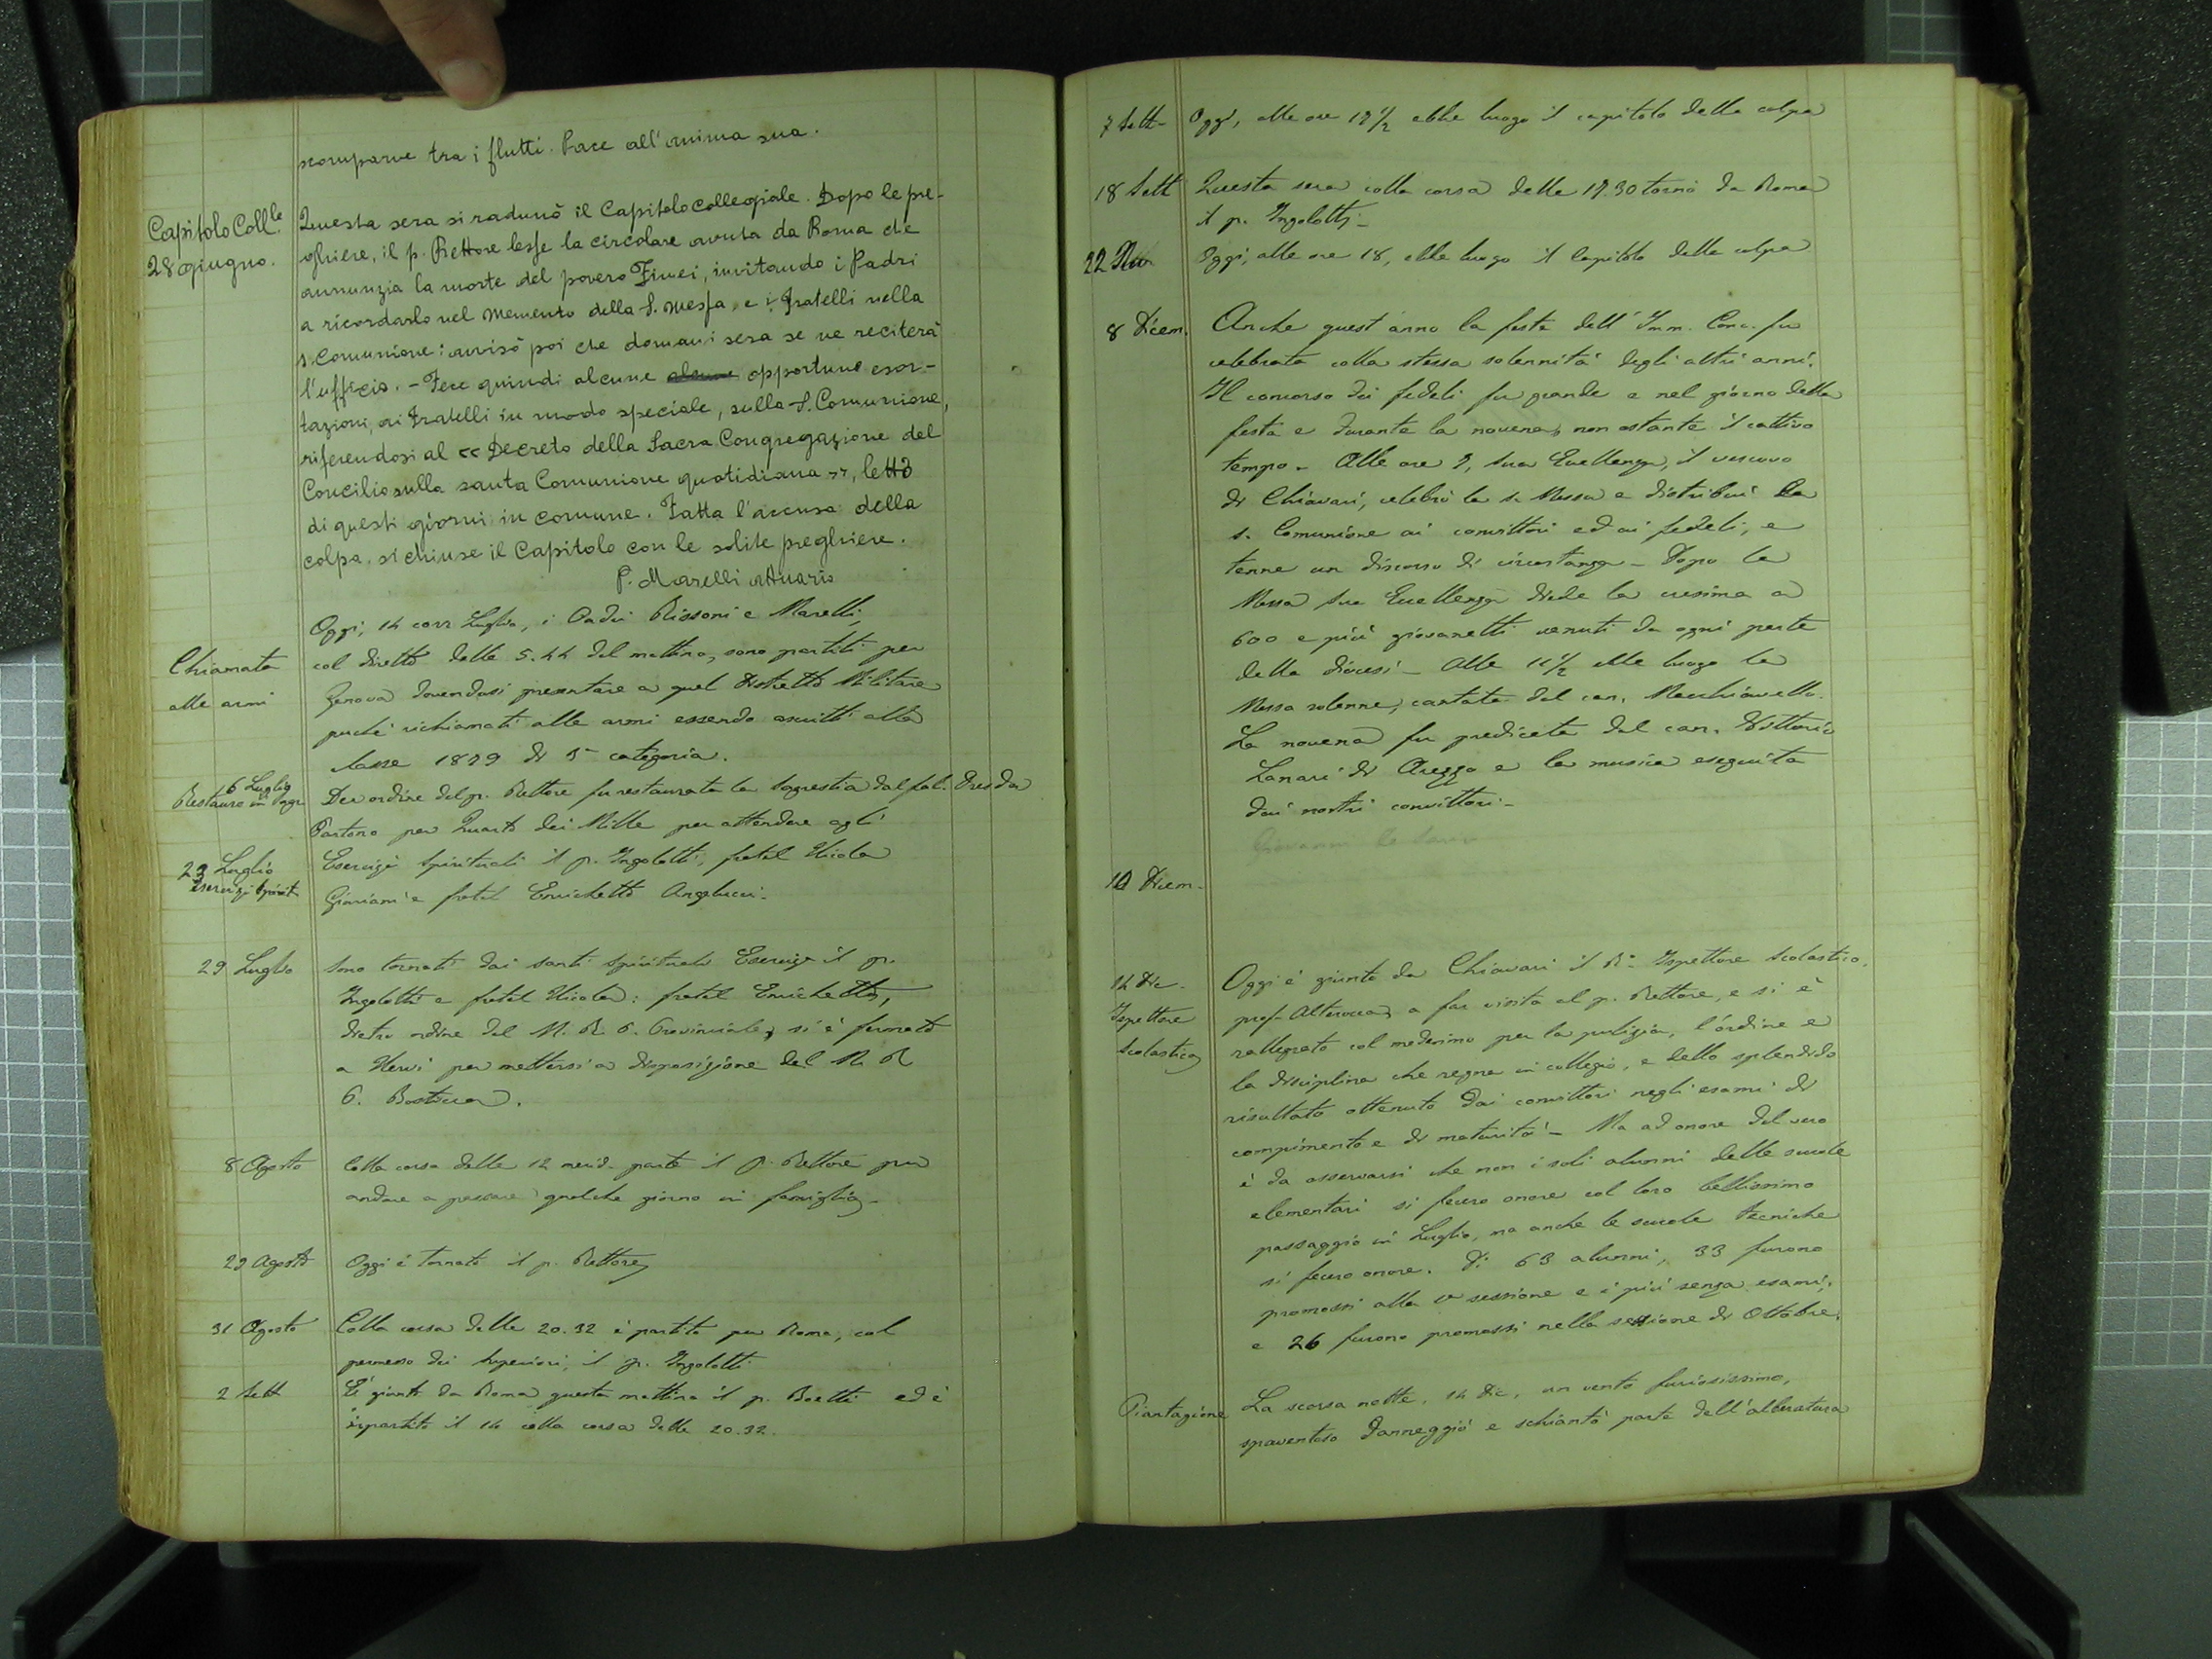 scomparve tra i flutti. Pace all'anima sua.
Capitolo Coll.le
28 giugno.
Questa sera si radunò il Capitolo collegiale. Dopo le pre-
ghiere, il p. Rettore lesse la circolare avuta da Roma che
annunzia la morte del povero Zinei, invitando i Padri
a ricordarlo nel Memento della S. Messa, e i fratelli nella
s. Comunione: avvisò poi che domani sera se ne reciterà
l'uffizio. - Fece quindi alcune alcune opportune esor-
tazioni, ai Fratelli in modo speciale, sulla S. Comunione,
riferendosi al << Decreto della Sacra Congregazione del
Concilio sulla santa Comunione quotidiana >>, letto
di questi giorni in comune. Fatta l'accusa della
colpa, si chiuse il Capitolo con le solite preghiere.
P. Marelli attuario
Chiamata
alle armi
Oggi, 14 corr Luglio, i Padri Rissoni e Marelli,
col diretto delle 5.44 del mattino, sono partiti per
Genova dovendosi presentare a quel Distretto Militare
perché richiamati alle armi essendo ascritti alla
classe 1879 di categoria.
6 Luglio
Restauro in sagr.
Per ordine del p. Rettore fu restaurata la Sagrestia dal fal.
Partono per Quarto dei Mille per attendere agli
23 Luglio
Esercizi Spirit.
Esercizi Spirituali il p. Ingolotti, fratel Nicola
e fratel Enrichetto Angelucci.
29 Luglio
Sono tornati dai santi Spirituali Esercizi il p.
Ingolotti e fratel Nicola: fratel Enrichetto,
dietro ordine del M. R. P. Provinciale, si è fermato
a Nervi per mettersi a disposizione del M. R.
P.
8 Agosto
Colla corsa delle 12 merid. parte il p. Rettore per
andare a passare qualche giorno in famiglia.
29 Agosto
Oggi è tornato il p. Rettore
31 Agosto
Colla corsa delle 20.32 è partito per Roma, col
permesso dei Superiori, il p. Ingolotti
2 Sett
È giunto da Roma questa mattina il p. Boetti ed è
ripartito il 14 colla corsa delle 20.32.
7 Sett-
Oggi, alle ore 17 1/2 ebbe luogo il capitolo della colpa
18 Sett
Questa sera colla corsa delle 17.30 tornò da Roma
il p. Ingolotti-
22 Nov
Oggi, alle ore 18, ebbe luogo il Capitolo della colpa
8 Dicem.
Anche quest'anno la festa dell'Imm. Conc. fu
celebrata colla stessa solennità degli altri anni.
Il concorso dei fedeli fu grande e nel giorno della
festa e durante la novena, non ostante il cattivo
tempo - Alle ore 7, Sua Eccellenza, il vescovo
di Chiavari, celebrò la s. Messa e distribuì la
s. Comunione ai convittori ed ai fedeli, e
tenne un discorso di circostanza - Dopo la
Messa Sua Eccellenza diede la cresima a
600 e più giovanetti venuti da ogni parte
della diocesi - Alle 11 1/2 ebbe luogo la
Messa solenne, cantata dal can. Macchiavello.
La novena fu predicata dal can. Vittorio
Lanari di Arezzo e la musica eseguita
dai nostri convittori-
10 Dicem-
14 Dic-
Ispettore
Scolastico
Oggi è giunto da Chiavari il R.o Ispettore Scolastico,
prof. Alterocca, a far visita al p. Rettore, e si è
rallegrato col medesimo per la pulizia, l'ordine e
la disciplina che regna in collegio, e dello splendido
risultato ottenuto dai convittori negli esami di
compimento e di maturità - Ma ad onore del vero
è da osservarsi che non i soli alunni delle scuole
elementari si fecero onore col loro bellissimo
passaggio in Luglio, ma anche le scuole tecniche
si fecero onore. Di 63 alunni, 33 furono
promossi alla sessione e i più senza esami,
e 26 furono promossi nella sessione di Ottobre.
Piantagione
La scorsa notte, 14 Dic, un vento furiosissimo,
spaventoso danneggiò e schiantò parte dell'alberatura